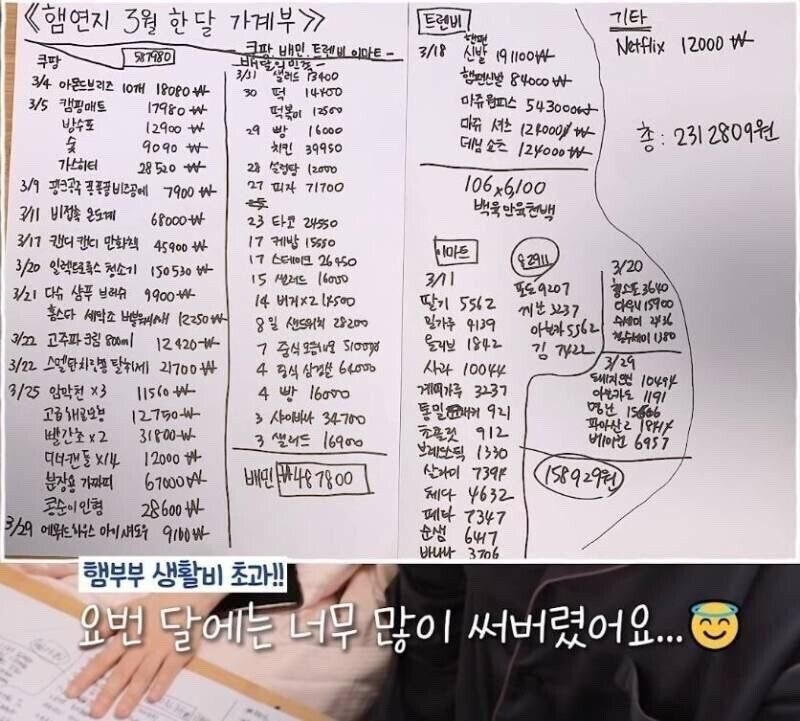 《햄연지 3월 한달 가계부》
쿠팡 587980
3/4 아몬드브리즈 10개 18080₩
3/5 캠핑매트 17980₩
방수포 12900₩
숯 9090₩
가스히터 28520₩
3/9 7900₩
3/11 비접촉 온도계 68000₩
3/17 캔디캔디 만화책 45900₩
3/20 일렉트로룩스 청소기 150530₩
3/21 다슈 샴푸 브러쉬 9900₩
홈스타 세탁조 12250₩
3/22 고주파 크림 800ml 12420₩
3/22 탈취제 21700₩
3/25 암막천 ×3 11560₩
12750₩
빨간초 ×2 31800₩
디너캔들 ×14 12000₩
67000₩
콩순이 인형 28600₩
3/29 에뛰드하우스 아이섀도우 9100₩
쿠팡, 배민, 트렌비, 이마트
배달의민족
3/31 샐러드 13400
30 떡 14400
떡볶이 12500
29 빵 16000
치킨 39950
28 설렁탕 12000
27 피자 71700
23 타코 24550
17 케밥 15550
17 스테이크 26450
15 샐러드 16000
14 버거×2 14500
8일 샌드위치 28200
7 중식 51000
4 중식 64000
4 빵 16000
3 34700
3 샐러드 16900
배민 ₩487800
트렌비
3/18 햄편 신발 191100₩
햄편신발 84000₩
마쥬 원피스 543000₩
마쥬 셔츠 124000₩
데님 쇼츠 124000₩
106×6,100
백육만육천백
이마트
3/11
딸기 5562
밀가루 4139
올리브 1842
사과 10044
계피가루 3237
통밀 921
초콜릿 912
브레드스틱 1330
살라미 7394
체다 4632
페타 7347
생 6417
바나나 3706
포도 9207
3237
아보카 5562
김 7422
3/20
3640
15900
수세미 2436
1380
3/29
10494
아보카도 1191
명란 15606
1844
베이컨 6957
158929원
기타
Netflix 12000₩
총 : 2312809원
햄부부 생활비 초과!!
요번 달에는 너무 많이 써버렸어요...